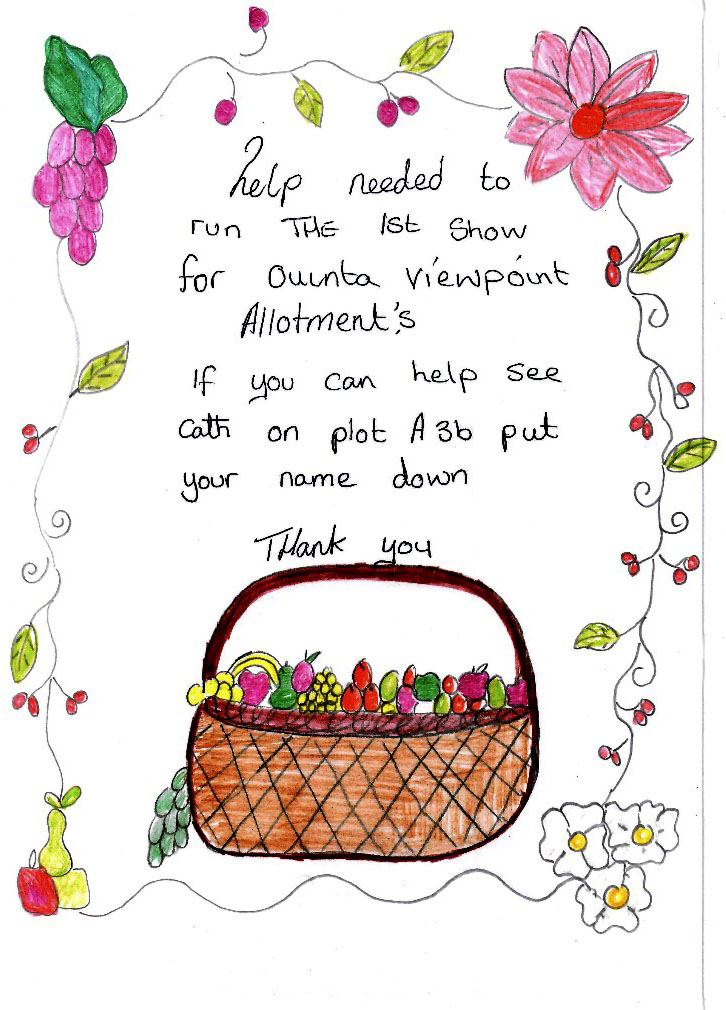 help needed to
run THE 1st Show
for Quinta Viewpoint
Allotment's
If you can help see
Cath on plot A3b put
your name down
THank you